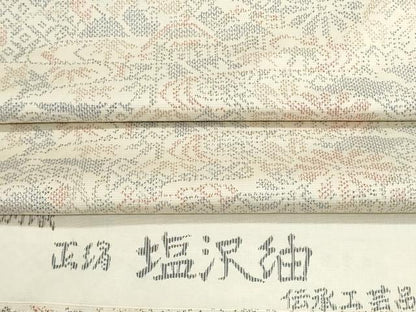 正絹 塩沢紬
伝承工芸品